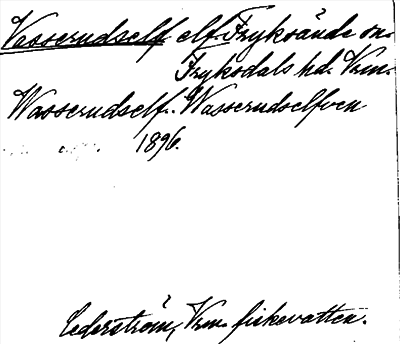 Vasserudself elf Fryksände sn.
Fryksdals hd. Vrm.
Wasserudself.. Wasserudselfven
1896.
Cederström, Vrm. fiskevatten.